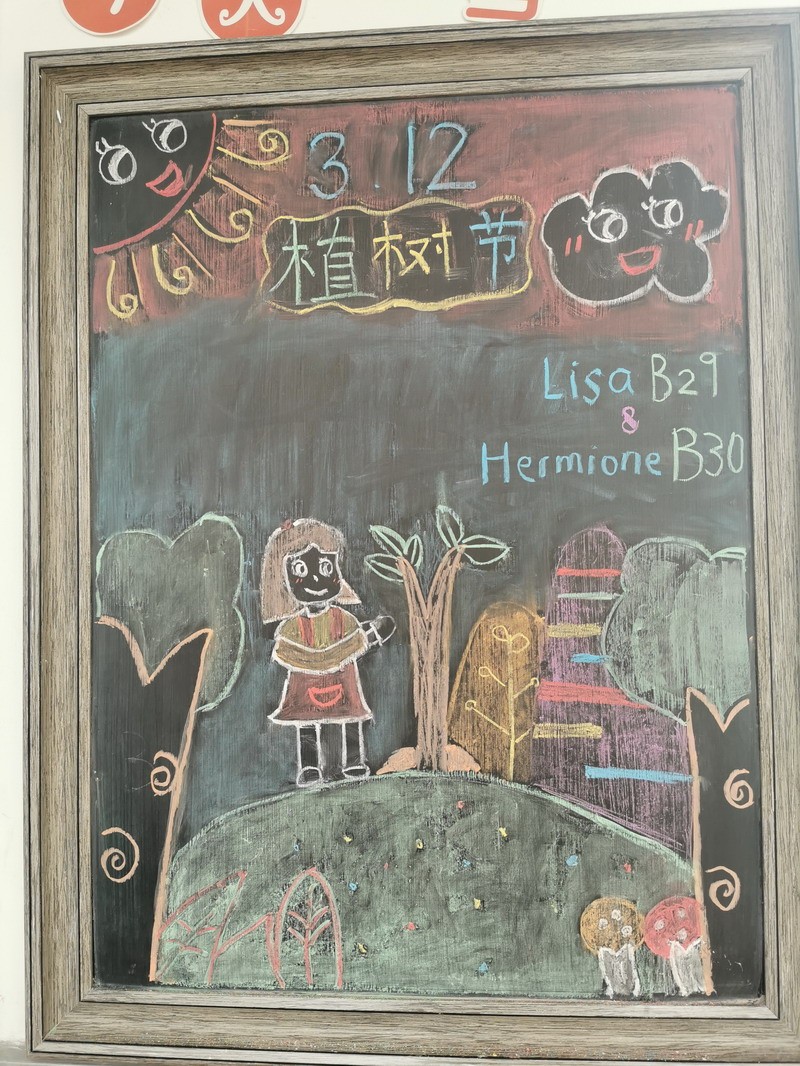 3.12
植树节
Lisa B29
&
Hermione B30